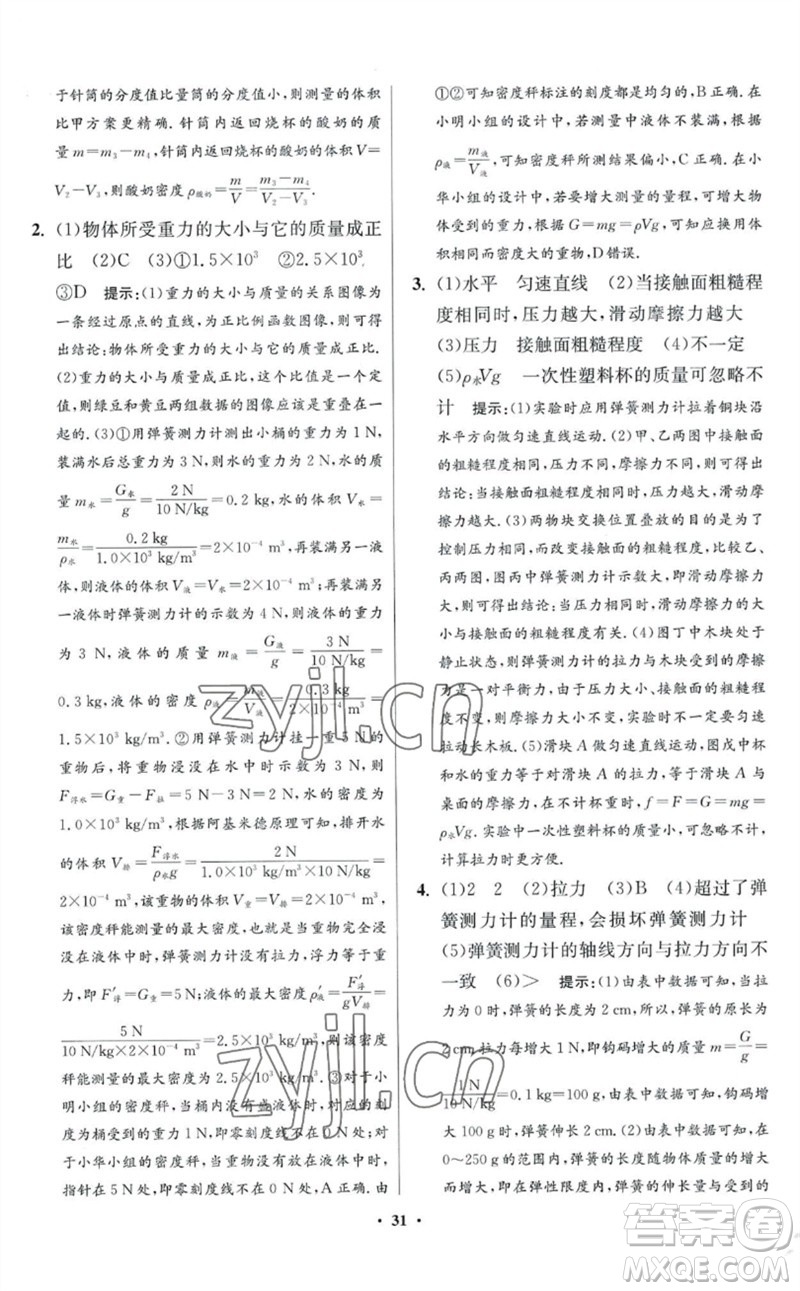 于针筒的分度值比量筒的分度值小,则测量的体积
比甲方案更精确. 针筒内返回烧杯的酸奶的质
量 m=m₃-m₄,针筒内返回烧杯的酸奶的体积V=
V₂-V₃,则酸奶密度 ρ酸奶=m/V=(m₃-m₄)/(V₂-V₃).
2. (1)物体所受重力的大小与它的质量成正
比 (2)C (3)①1.5×10³ ②2.5×10³
③D 提示:(1)重力的大小与质量的关系图像为
一条经过原点的直线,为正比例函数图像,则可得
出结论:物体所受重力的大小与它的质量成正比.
(2)重力的大小与质量成正比,这个比值是一个定
值,则绿豆和黄豆两组数据的图像应该是重叠在一
起的. (3)①用弹簧测力计测出小桶的重力为 1 N,
装满水后总重力为 3 N,则水的重力为 2 N,水的质
量 m水=G水/g=2 N/(10 N/kg)=0.2 kg,水的体积 V水=
m水/ρ水=0.2 kg/(1.0×10³ kg/m³)=2×10⁻⁴ m³,再装满另一液
体,则液体的体积 V液=V水=2×10⁻⁴ m³;再装满另
一液体时弹簧测力计的示数为 4 N,则液体的重力
为 3 N,液体的质量 m液=G液/g=3 N/(10 N/kg)=
0.3 kg,液体的密度 ρ液=m液/V液=0.3 kg/(2×10⁻⁴ m³)=
1.5×10³ kg/m³. ②用弹簧测力计挂一重 5 N 的
重物后,将重物浸没在水中时示数为 3 N,则
F浮水=G重-F拉=5 N-3 N=2 N,水的密度为
1.0×10³ kg/m³,根据阿基米德原理可知,排开水
的体积 V排=F浮水/(ρ水g)=2 N/(1.0×10³ kg/m³×10 N/kg)=
2×10⁻⁴ m³,该重物的体积 V重=V排=2×10⁻⁴ m³;
该密度秤能测量的最大密度,应是当重物完全浸
没在液体中时,弹簧测力计没有拉力,浮力等于重
力,即 F′浮=G重=5 N;液体的最大密度 ρ′液=F′浮/(gV排)=
5 N/(10 N/kg×2×10⁻⁴ m³)=2.5×10³ kg/m³,则该密度
秤能测量的最大密度为 2.5×10³ kg/m³. ③对于小
明小组的密度秤,当桶内没有盛液体时,对应的刻
度大于 1 N 处,即零刻度线不在弹簧测力计 0 N 处;
对于小华小组的密度秤,当重物没有放在液体中时,
指针在 5 N 处,即零刻度线不在 0 N 处,A 正确. 由
①②可知密度秤标注的刻度都是均匀的,B 正确. 在
小明小组的设计中,若测量中液体不装满,根据
ρ液=m液/V液,可知密度秤所测结果偏小,C 正确. 在小
华小组的设计中,若要增大测量的量程,可增大物
体的重力,根据 G=mg=ρVg,可知应换用体积
相同、密度更大的重物,D 错误.
3. (1)水平 匀速直线 (2)当接触面粗糙程
度相同时,压力越大,滑动摩擦力越大
(3)压力 接触面粗糙程度 (4)不一定
(5)ρ水Vg 一次性塑料杯的质量可忽略不
计 提示:(1)实验时应用弹簧测力计拉着铜块沿
水平方向做匀速直线运动. (2)甲、乙两图中接触面
的粗糙程度相同,压力不同,摩擦力不同,则可得出
结论:当接触面的粗糙程度相同时,压力越大,滑动
摩擦力越大. (3)两物块交换位置叠放的目的是为了
控制压力相同,改变接触面的粗糙程度,比较乙、
丙两图,图丙中弹簧测力计示数大,即滑动摩擦力
大,则可得出结论:压力相同时,滑动摩擦力的大小
与接触面的粗糙程度有关. (4)图丁中木块处于
静止状态,则弹簧测力计的拉力与木块受到的摩擦
力是一对平衡力,由于压力大小、接触面的粗糙程
度不变,则摩擦力大小不变,实验时不一定要匀速
拉动长木板. (5)滑块 A 做匀速直线运动,图戊中杯
和水的重力等于对滑块 A 的拉力,等于滑块 A 与
桌面的摩擦力,在不计杯重时,f=F=G=mg=
ρ水Vg. 实验中一次性塑料杯的质量小,可忽略不计,
计算拉力时更方便.
4. (1)2 2 (2)拉力 (3)B (4)超过了弹
簧测力计的量程,会损坏弹簧测力计
(5)弹簧测力计的轴线方向与拉力方向不
一致 (6)> 提示:(1)由表中数据可知,当
拉力为 0 时,弹簧的长度为 2 cm,所以,弹簧的原长为
2 cm,拉力每增大 1 N,即钩码增大的质量 m=G/g=
1 N/(10 N/kg)=0.1 kg=100 g,由表中数据可知,钩码增
大 100 g,弹簧伸长 2 cm. (2)由表中数据可知,在
0~250 g 的范围内,弹簧的长度随物体质量的增大
而增大,即在弹性限度内,弹簧的伸长量与受到的
• 31 •
zyjl.cn
zyjl.cn
答案卷
MXQE.COM